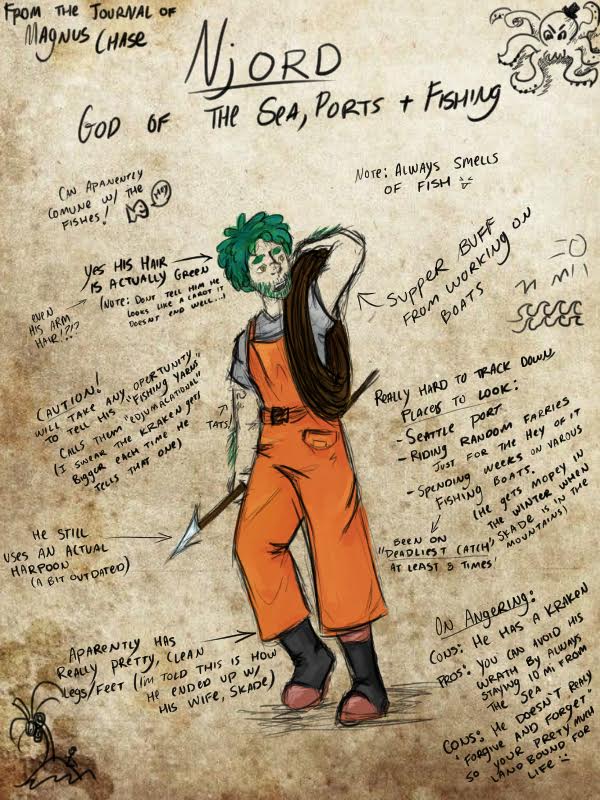 From the Journal of
Magnus Chase
Njord
God of the Sea, Ports + Fishing
Can Aparently
comune w/ the
fishes!
Hey
Note: Always smells
of fish
Yes his hair
is actually green
(Note: Dont tell him he
looks like a carot it
doesn't end well...)
Even
his arm
hair!?!?
Supper buff
from working on
boats
Caution!
Will take any oportunity
to tell his "fishing yarns"
Calls them "edjumacational"
(I swear the kraken gets
bigger each time he
tells that one)
Tats!
Really hard to track down
Places to look:
- Seattle port
- Riding random farries
just for the hey of it
- Spending weeks on varous
fishing boats.
(He gets mopey in
the winter when
Skade is in the
mountains)
Been on
"Deadliest Catch"
at least 3 times!
He still
uses an actual
harpoon
(a bit outdated)
Aparently has
really pretty, clean
legs/feet (I'm told this is how
he ended up w/
his wife, Skade)
On Angering:
Cons: He has a kraken
Pros: You can avoid his
wrath by always
staying 10 mi from
the sea.
Cons: He doesn't realy
"forgive and forget"
so your prety much
land bound for
life